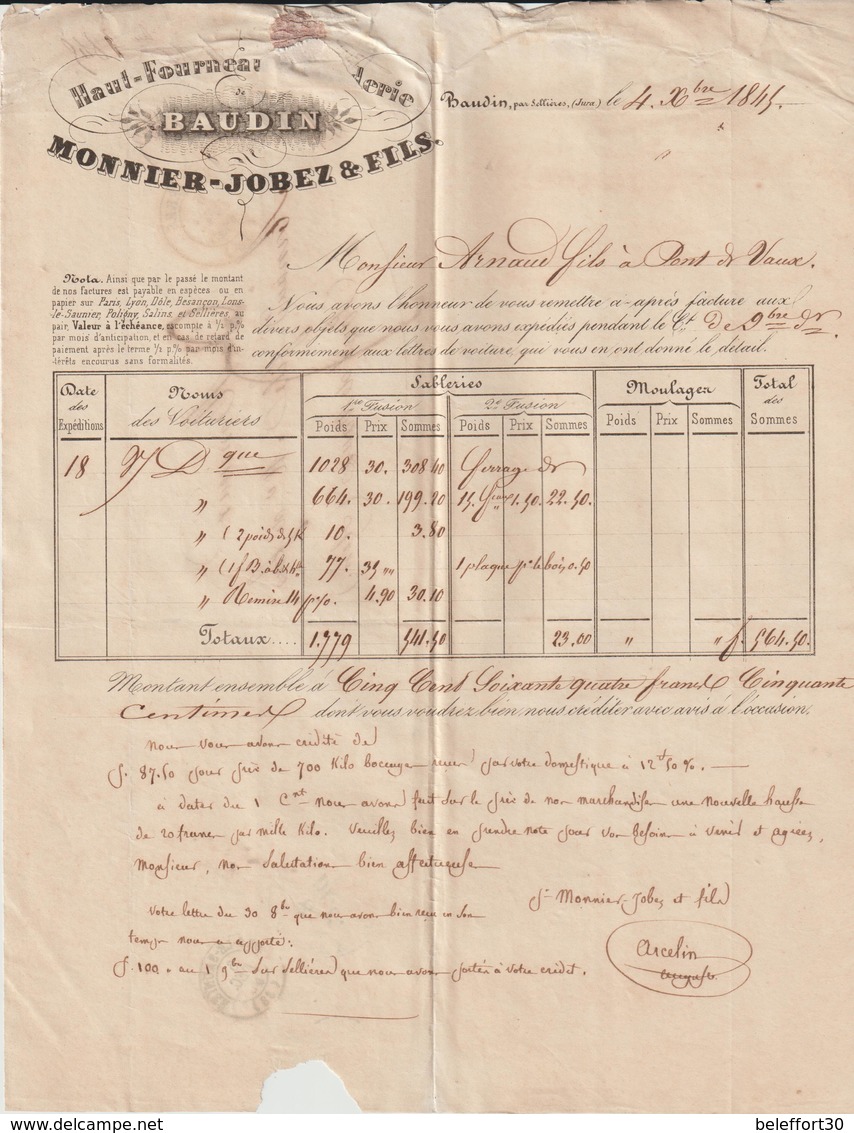 Haut-Fourneau
de
BAUDIN
MONNIER-JOBEZ & FILS.
Baudin, par Sellières, (Jura) le 4. Xbre 1845.
Monsieur Arnaud fils à Pont de Vaux.
Nota. Ainsi que par le passé le montant
de nos factures est payable en espèces ou en
papier sur Paris, Lyon, Dôle, Besançon, Lons-
le-Saunier, Poligny, Salins, et Sellières, au
pair, Valeur à l'échéance, escompte à ½ p.%
par mois d'anticipation, et en cas de retard de
paiement après le terme ½ p.% par mois d'in-
térêts encourus sans formalités.
Nous avons l'honneur de vous remettre ci-après facture aux
divers objets que nous vous avons expédiés pendant le Ct. de 9bre dr
conformement aux lettres de voiture, qui vous en ont donné le détail.
Date des Expéditions | Noms des Voituriers | Sableries | Moulages | Total des Sommes
1re Fusion | 2e Fusion
Poids | Prix | Sommes | Poids | Prix | Sommes | Poids | Prix | Sommes
18 | que | 1028 | 30. | 308.40 | ferrage dr
" | 664. | 30. | 199.20 | 15. | 1.50. | 22.50.
" (2 poids de 5 k | 10. | 3.80
" | 77. | 35 "" | 1 plaque pr le bois | 0.50
" Remise 14 p%. | 4.90 | 30.10
Totaux.... | 1.779 | 541.50 | 23.00 | " | " f. | 564.50.
Montant ensemble à Cinq Cent Soixante quatre francs Cinquante
Centimes dont vous voudrez bien nous créditer avec avis à l'occasion.
Nous vous avons crédité de
f. 87.50 pour prix de 700 Kilo bocage reçus par votre domestique à 12f 50 %.
à dater du 1 Cnt nous avons fait sur le prix de nos marchandises une nouvelle hausse
de 20 francs par mille Kilo. Veuillez bien en prendre note pour vos besoins à venir et agréez,
Monsieur, nos salutations bien affectueuses
Votre lettre du 30 8bre que nous avons bien reçu en son
pr Monnier-Jobez et fils
temps nous a apporté:
Arcelin
f. 100. au 1 9bre sur Sellières que nous avons portés à votre crédit.
delcampe.net
beleffort30